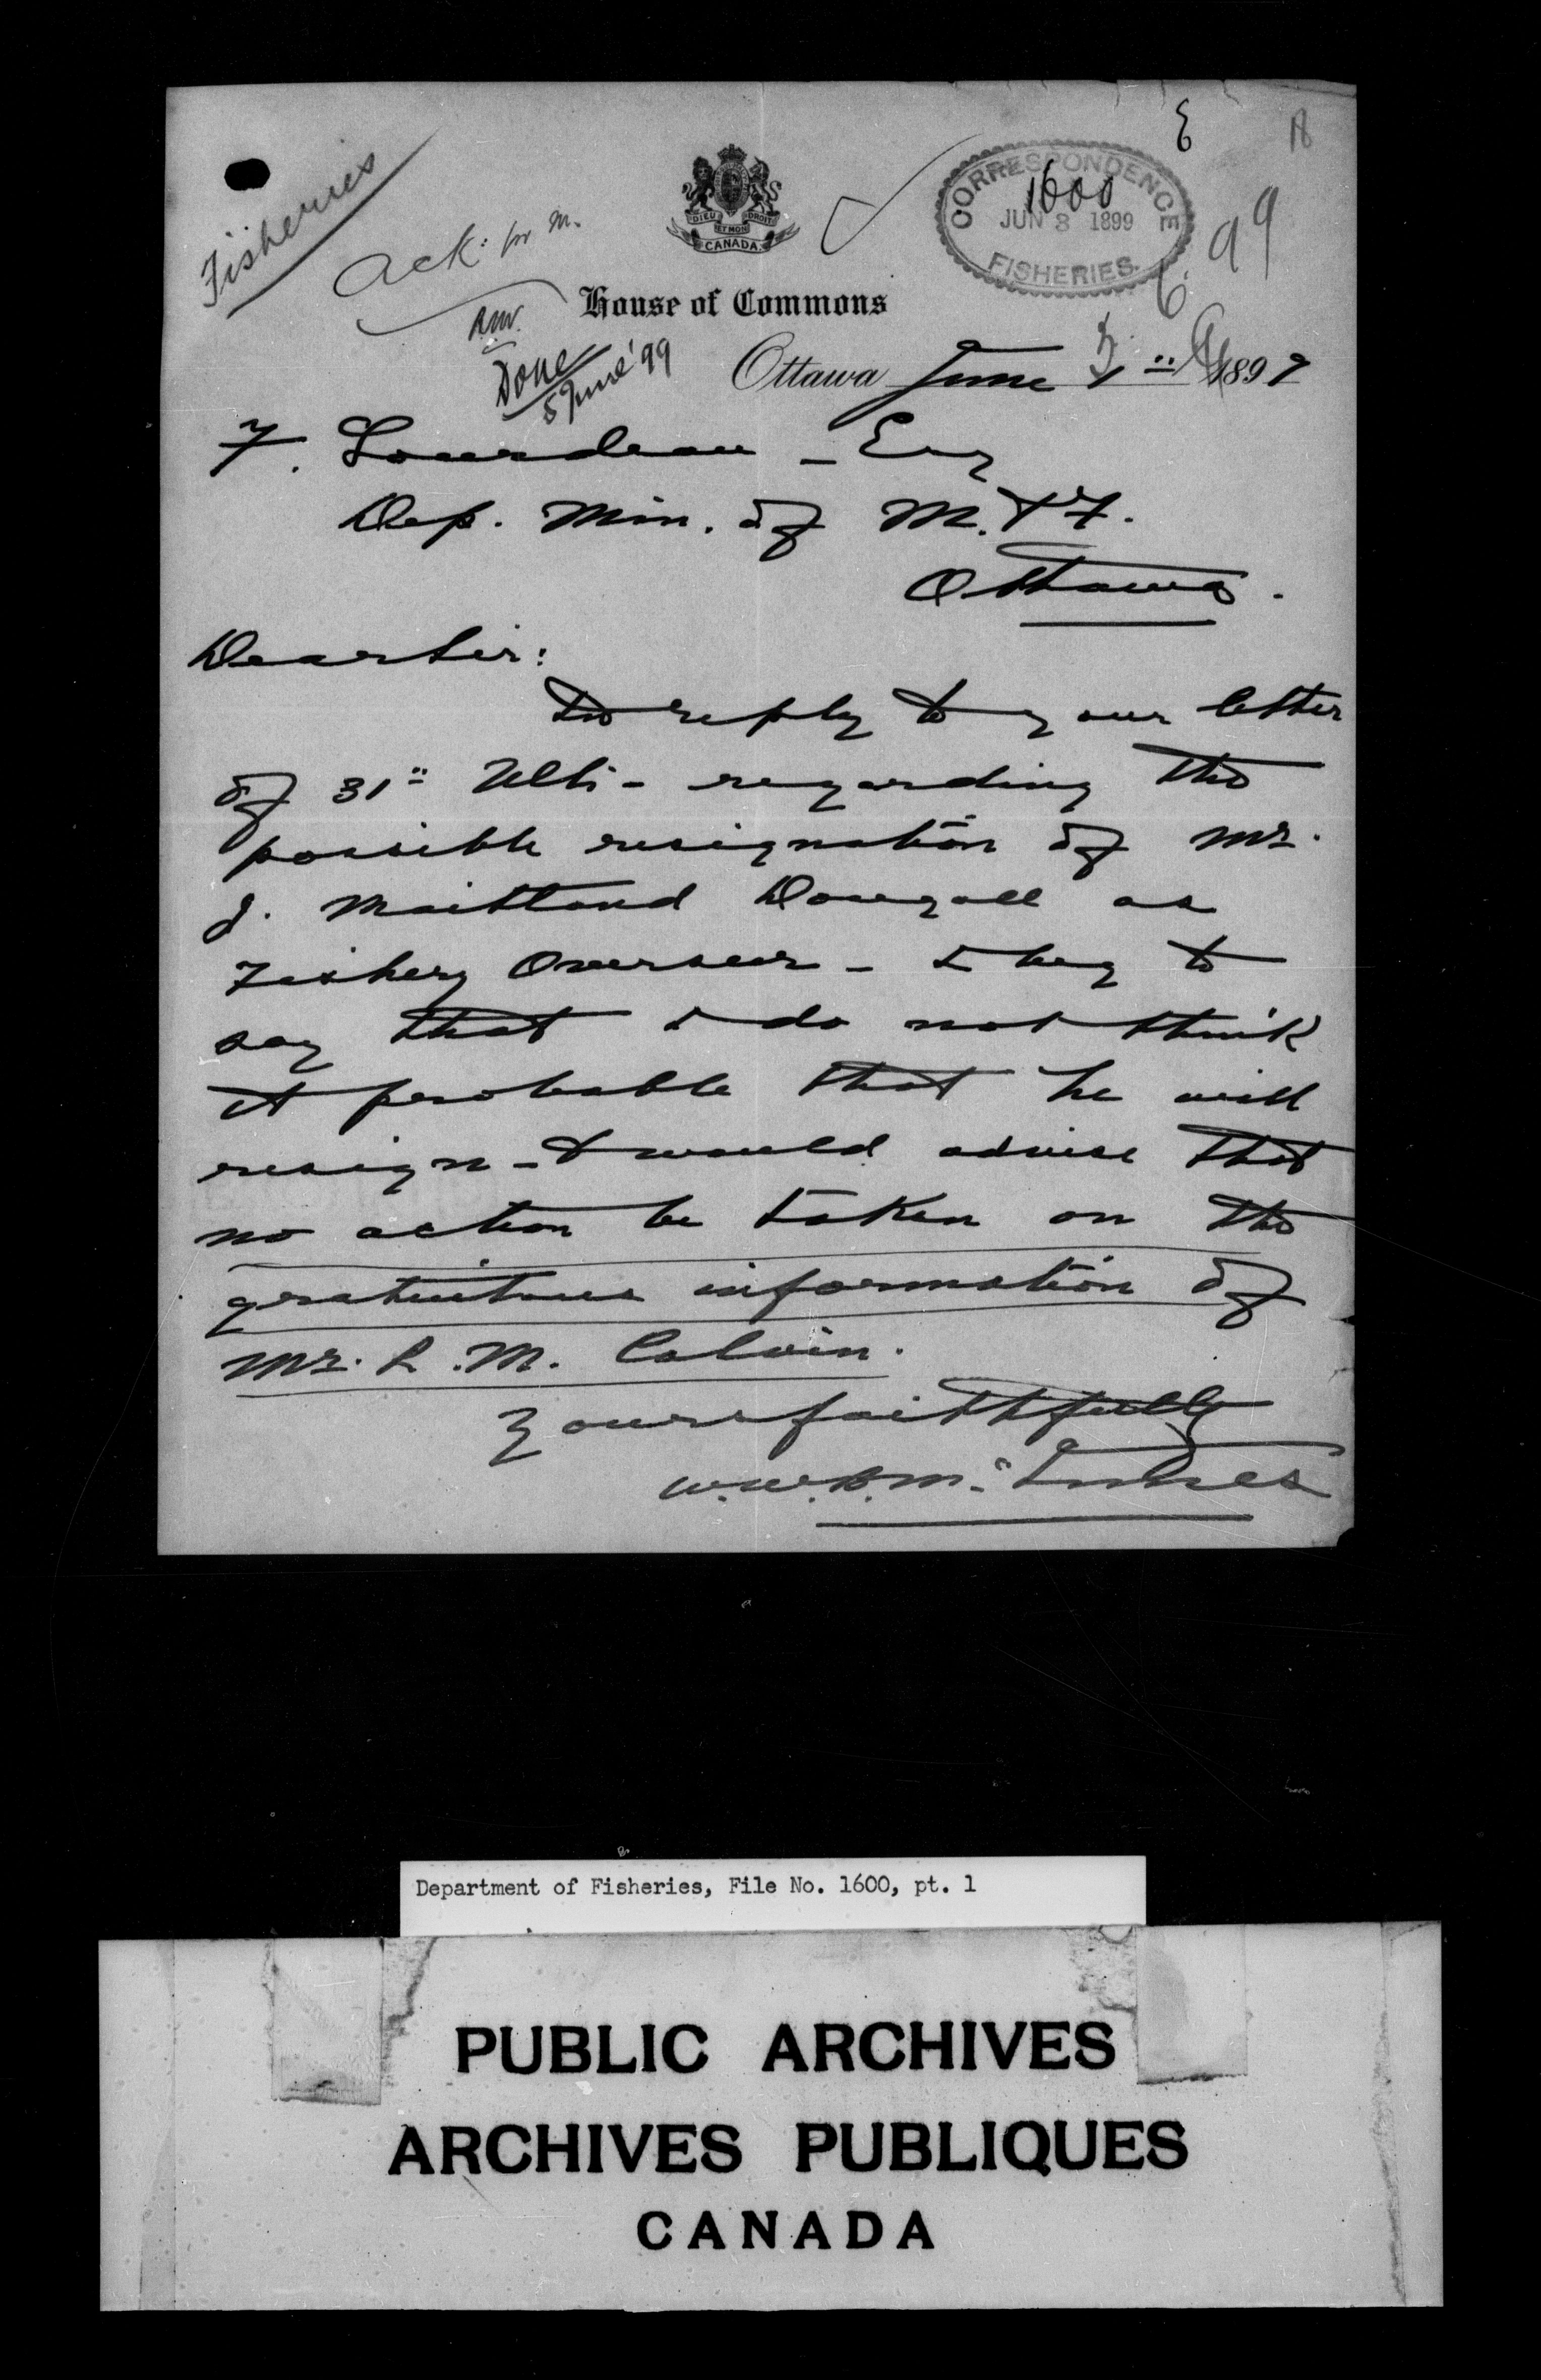 E
Fisheries
Ack: for M.
RW.
Done
5 June '99
DIEU ET MON DROIT
CANADA
CORRESPONDENCE
1600
JUN 3 1899
FISHERIES.
99
House of Commons
Ottawa June 1" 1899
F. Gourdeau - Esq
Dep. Min. of M. & F.
Ottawa.
Dear Sir:
In reply to your letter
of 31" Ult. - regarding the
possible resignation of Mr.
J. Maitland Dougall as
Fishery Overseer - I beg to
say that I do not think
it probable that he will
resign - I would advise that
no action be taken on the
gratuitous information of
Mr. R. M. Colvin.
Yours faithfully
W.W.B. McInnes
Department of Fisheries, File No. 1600, pt. 1
PUBLIC ARCHIVES
ARCHIVES PUBLIQUES
CANADA